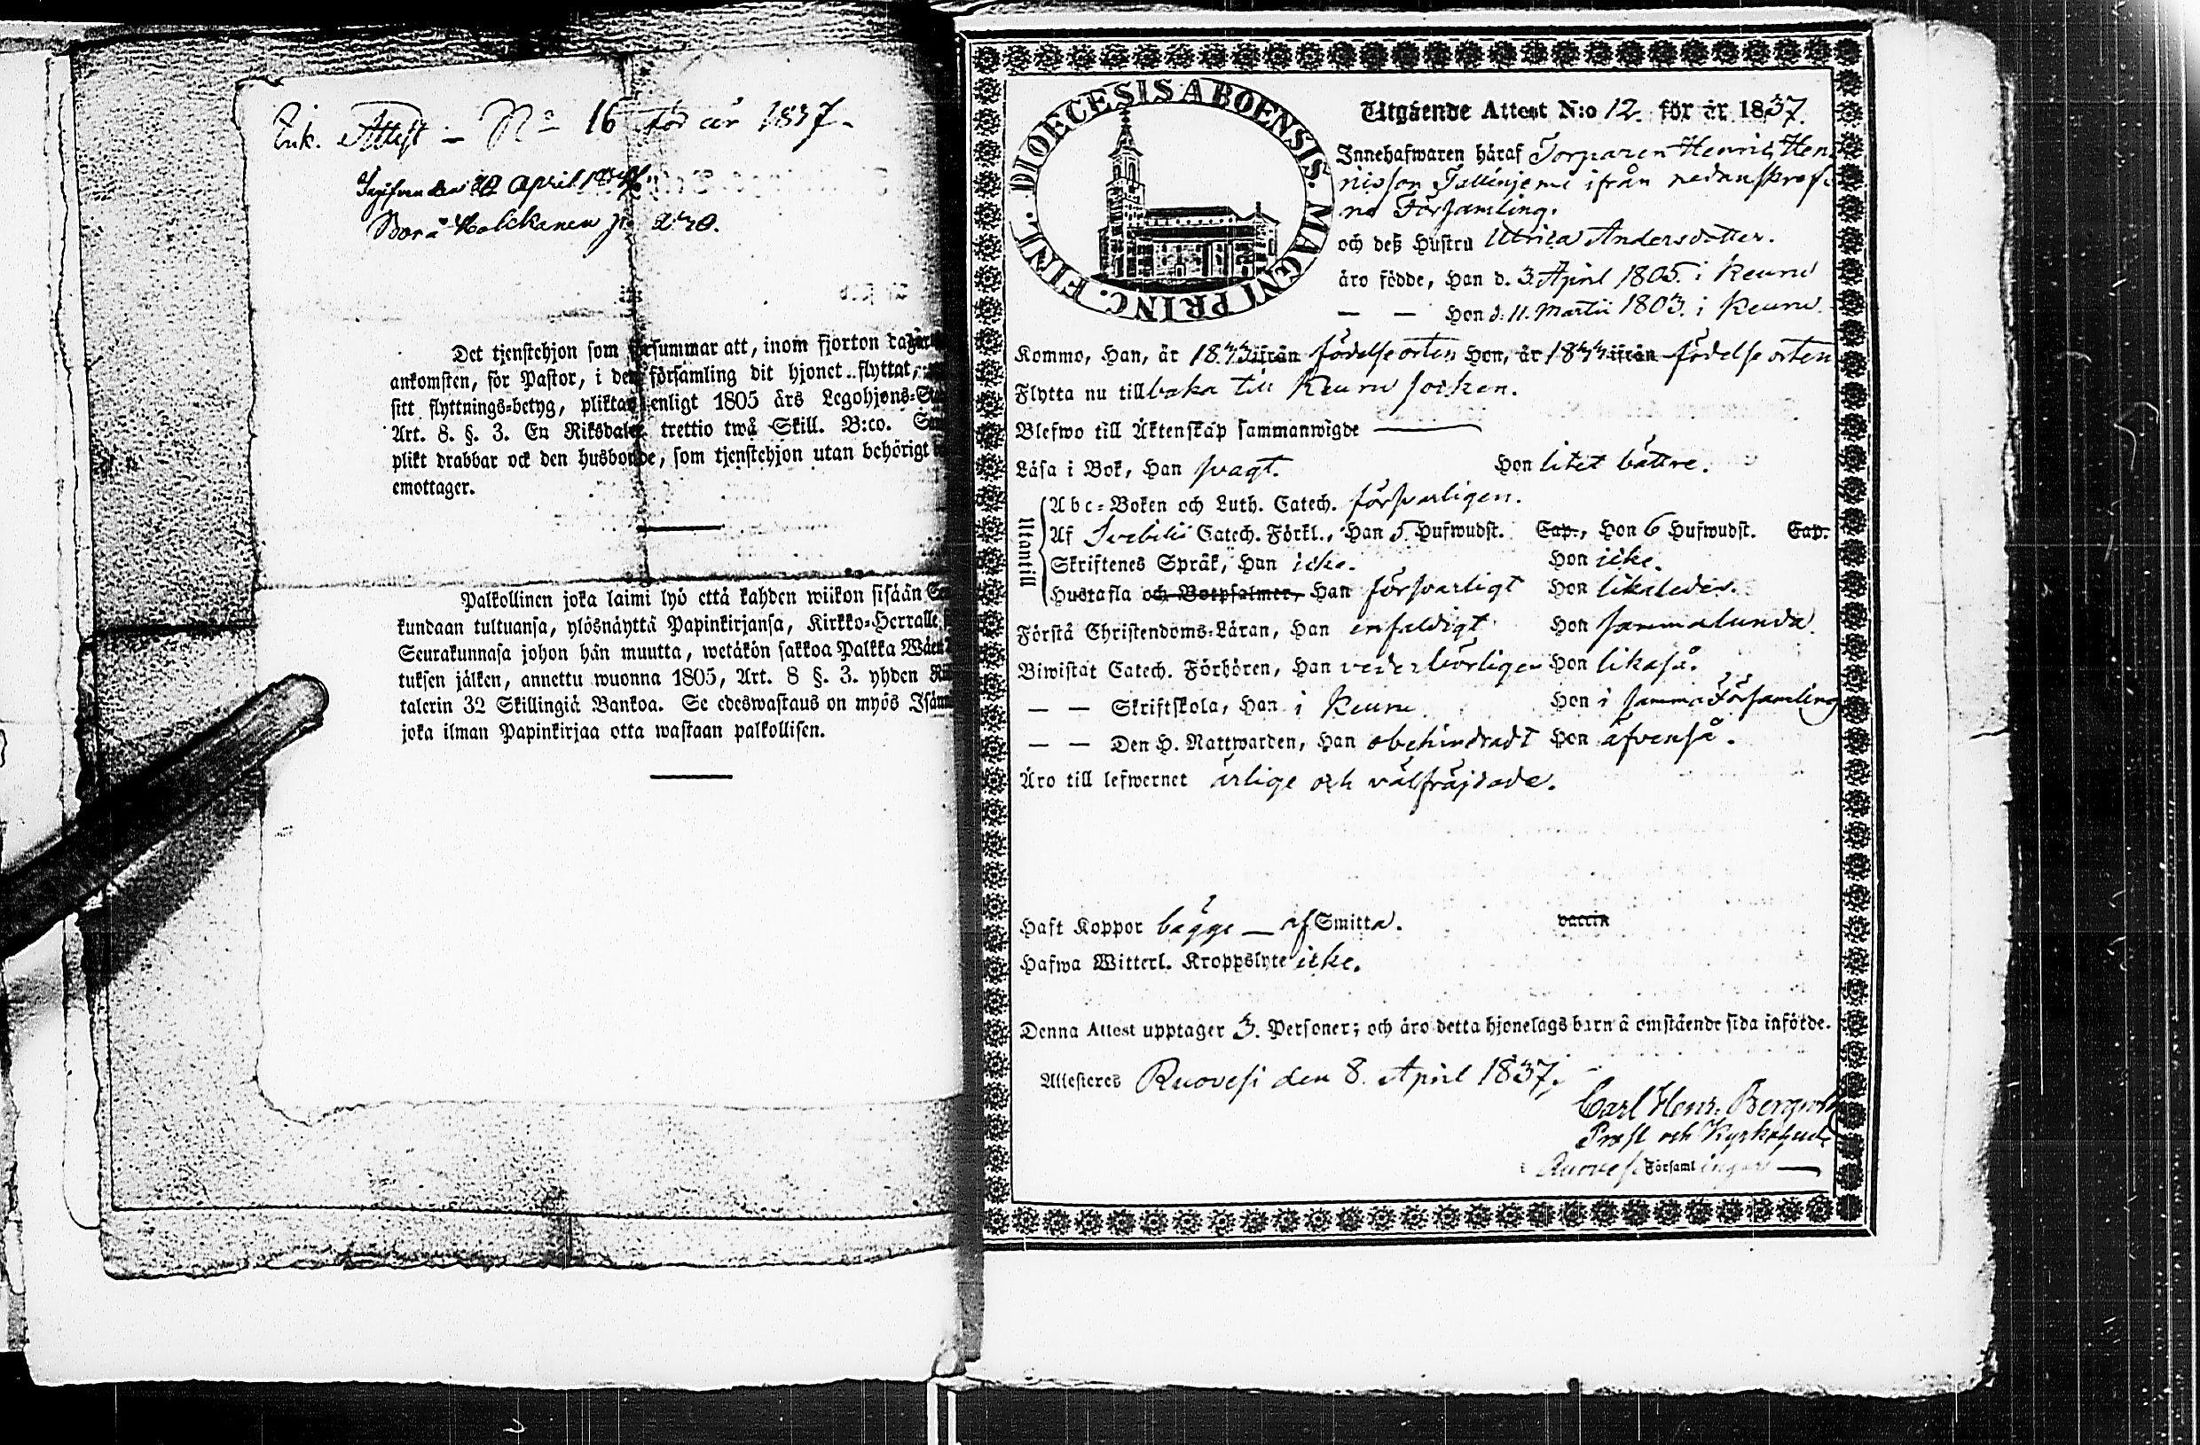 Ink. Attest – No 16 för år 1837.
April
Det tjenstehjon som försummar att, inom fjorton dagar
ankomsten, för Pastor, i den församling dit hjonet flyttat,
sitt flyttnings-betyg, pliktar enligt 1805 års Legohjons-
Art. 8. §. 3. En Riksdaler trettio twå Skill. B:co.
plikt drabbar ock den husbonde, som tjenstehjon utan behörigt
emottager.
Palkollinen joka laimi lyö että kahden wiikon sisään
kundaan tultuansa, ylösnäyttä Papinkirjansa, Kirkko-Herralle,
Seurakunnasa johon hän muutta, wetäkön sakkoa Palkka
tuksen jälken, annettu wuonna 1805, Art. 8 §. 3. yhden
talerin 32 Skillingiä Bankoa. Se edeswastaus on myös
joka ilman Papinkirjaa otta wastaan palkollisen.
DIOECESIS ABOENSIS. MAGNI PRINC. FINL.
Utgående Attest N:o 12. för år 1837.
Innehafwaren häraf Torparen Henric Hen
ricsson ifrån nedanskref
ne Församling.
och deß Hustru Ulrica Andersdotter.
äro födde, Han d. 3. April 1805. i Keuru
— — Hon d. 11. Martii 1803. i Keuru.
Kommo, Han, år 1833 ifrån födelseorten Hon, år 1833 ifrån födelseorten
Flytta nu tillbaka till Keuru socken.
Blefwo till Äktenskap sammanwigde ———
Läsa i Bok, Han svagt. Hon litet bättre.
Utantill
Abc-Boken och Luth. Catech. försvarligen.
Af Svebilii Catech. Förkl., Han 5 Hufwudst. Cap., Hon 6 Hufwudst. Cap.
Skriftenes Språk, Han icke. Hon icke.
Hustafla och Botpsalmer, Han försvarligt Hon likaledes.
Förstå Christendoms-Läran, Han enfaldigt Hon sammalunda.
Biwistat Catech. Förhören, Han vederbörligen Hon likaså.
— — Skriftskola, Han i Keuru Hon i samma Församling
— — Den H. Nattwarden, Han obehindradt Hon äfvenså.
Äro till lefwernet ärlige och välfräjdade.
Haft Koppor bägge — af Smitta. vaccin
Hafwa Witterl. Kroppslyte icke.
Denna Attest upptager 3. Personer; och äro detta hjonelags barn å omstående sida införde.
Attesteras Ruovesi den 8. April 1837.
Carl Henr.
Prost och Kyrkoherde
Ruovesi Församlingar —